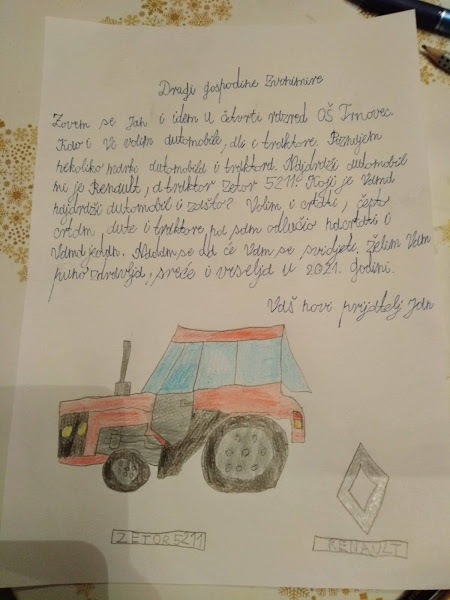 Dragi gospodine Zvonimire
Zovem se Jan i idem u četvrti razred OŠ Trnovec.
Kao i Vi volim automobile, ali i traktore. Poznajem
nekoliko marki automobila i traktora. Najdraži automobil
mi je Renault, a traktor Zetor 5211. Koji je Vama
najdraži automobil i zašto? Volim i crtati, često
crtam, aute i traktore, pa sam odlučio nacrtati i
Vama jedan. Nadam se da će Vam se svidjeti. Želim Vam
puno zdravlja, sreće i veselja u 2021. godini.
Vaš novi prijatelj Jan
ZETOR 5211
RENAULT